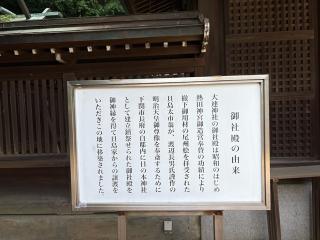 御社殿の由来
大連神社の御社殿は昭和のはじめ
熱田神宮御造営奉賛の功績により
徹下御用材の尾州桧を拝受された
日島太市翁が、渡辺長男氏謹作の
明治天皇御尊像を奉斎するために
下関市長府の自邸内に日の本神社
として建立鎮祭せられた御社殿を
御神縁を得て日島家からの譲渡を
いただきこの地に移築されました。